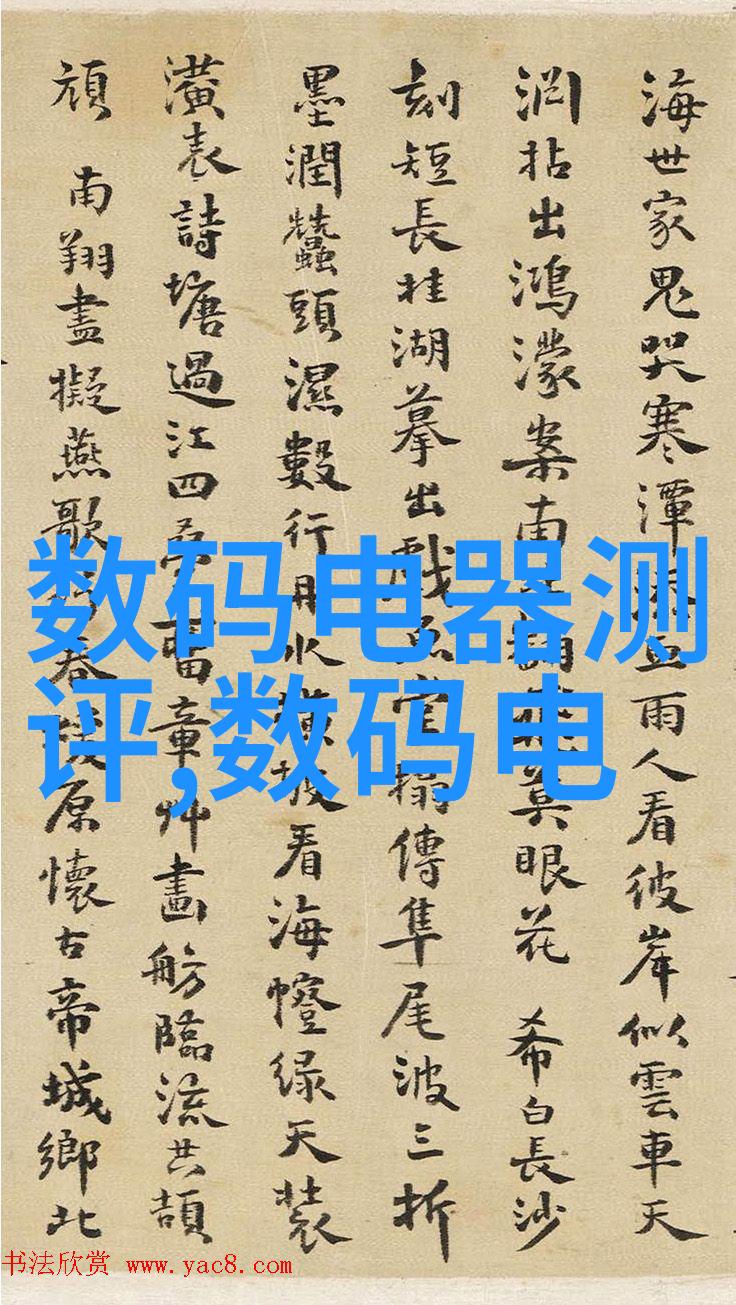 海世家鬼哭寒潭添豆雨人看彼岸似雲車天
淵拈出鴻濛案南莫眼花 希白長沙
刻短長桂湖摹出戲魚堂搨傳隼尾波三折
墨潤蠶頭濕數行用水橫披看海幢绿天裝
潢表詩塘過江四畱章艸畫舫臨流共頡
頏 南翔盡擬燕歌春原懷古帝城鄉北
数码电器测
评,数码电
书法欣赏 www.yac8.com